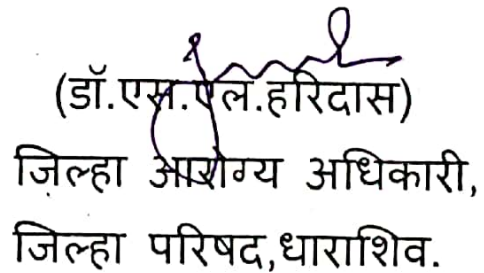 (डॉ.एस.एल.हरिदास)
जिल्हा आरोग्य अधिकारी,
जिल्हा परिषद,धाराशिव.